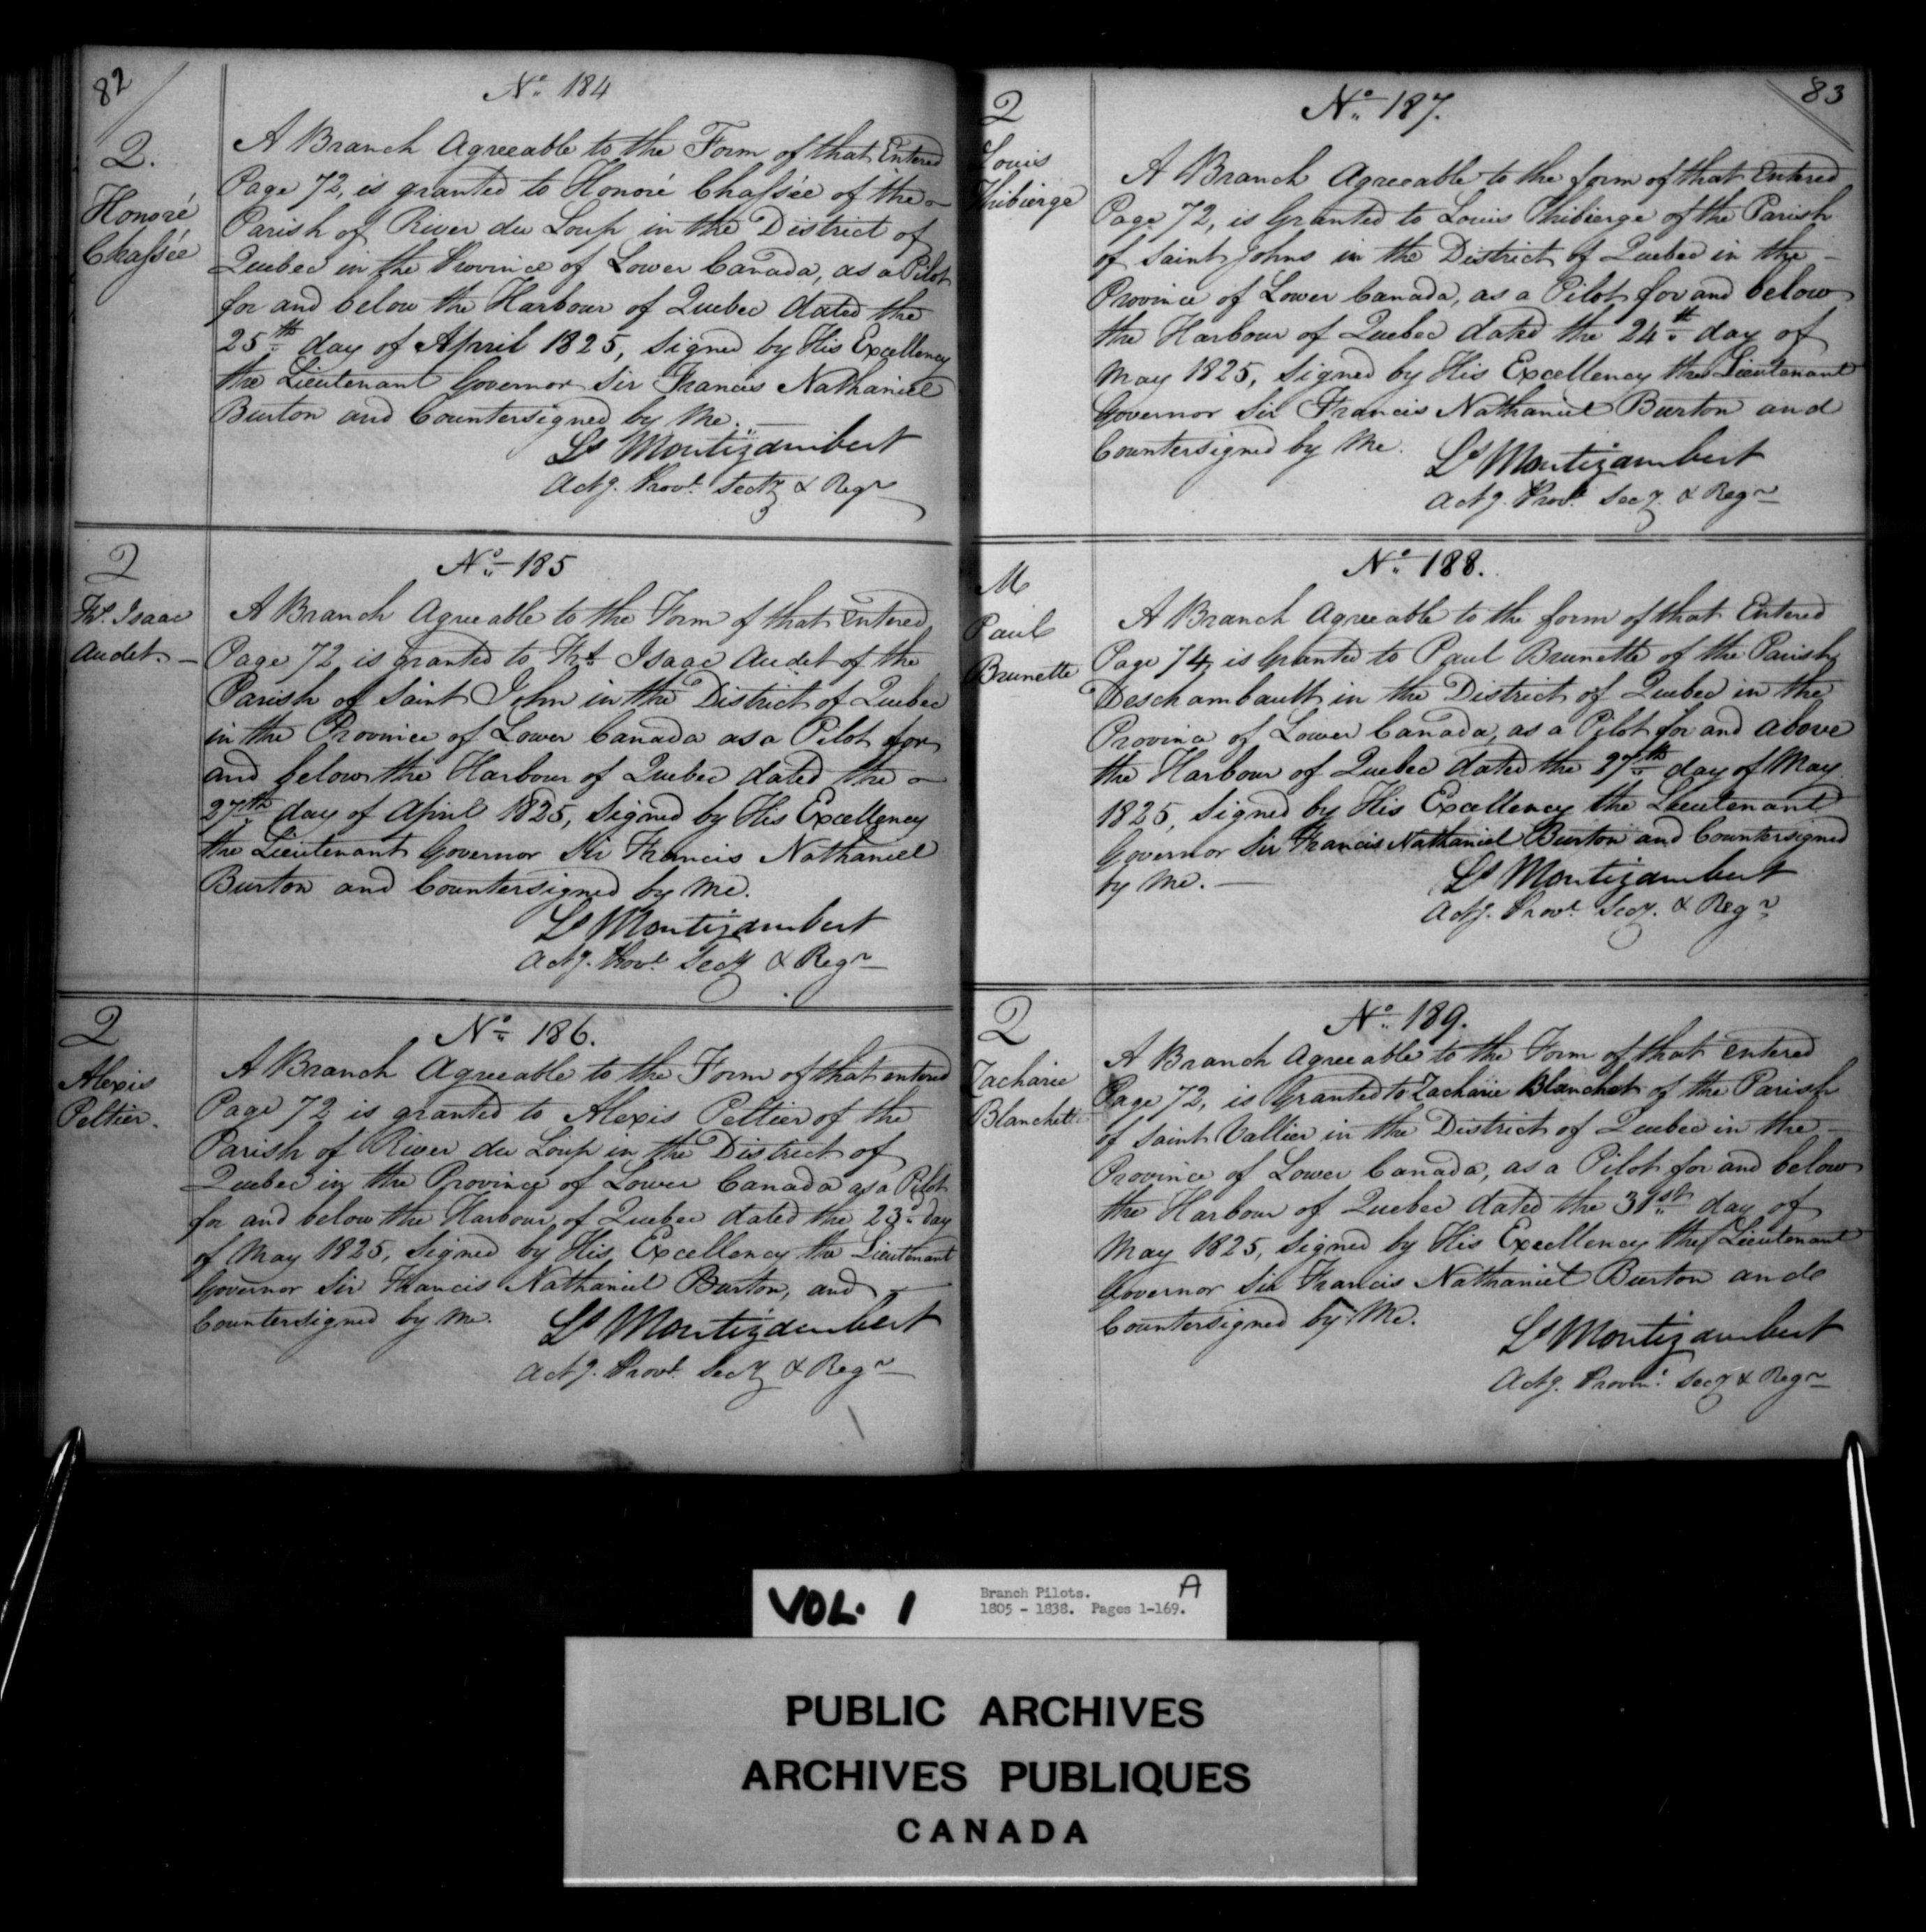 82
No. 184
2.
Honoré
Chassée
A Branch Agreeable to the Form of that Entered
Page 72, is granted to Honoré Chassée of the
Parish of River du Loup in the District of
Quebec in the Province of Lower Canada, as a Pilot
for and below the Harbour of Quebec dated the
25th day of April 1825, signed by His Excellency
the Lieutenant Governor Sir Francis Nathaniel
Burton and Countersigned by Me.
Ls Montizambert
Actg. Provl. Secty & Regr
2
Audet.
No. 185
A Branch Agreeable to the Form of that Entered
Page 72 is granted to Isaac Audet of the
Parish of Saint John in the District of Quebec
in the Province of Lower Canada as a Pilot for
and below the Harbour of Quebec dated the
27th day of April 1825, Signed by His Excellency
the Lieutenant Governor Sir Francis Nathaniel
Burton and Countersigned by Me.
Ls Montizambert
Actg. Provl. Secty & Regr
2
Alexis
Peltier.
No. 186.
A Branch Agreeable to the Form of that entered
Page 72 is granted to Alexis Peltier of the
Parish of River du Loup in the District of
Quebec in the Province of Lower Canada as a Pilot
for and below the Harbour of Quebec dated the 23d day
of May 1825, Signed by His Excellency the Lieutenant
Governor Sir Francis Nathaniel Burton, and
Countersigned by Me.
Ls Montizambert
Actg. Provl. Secty & Regr
83
2
Louis
Thibierge
No. 187.
A Branch Agreeable to the form of that Entered
Page 72, is Granted to Louis Thibierge of the Parish
of Saint Johns in the District of Quebec in the
Province of Lower Canada, as a Pilot for and below
the Harbour of Quebec dated the 24th day of
May 1825, Signed by His Excellency the Lieutenant
Governor Sir Francis Nathaniel Burton and
Countersigned by Me.
Ls Montizambert
Actg. Provl. Secy. & Regr
M
Paul
Brunette
No. 188.
A Branch Agreeable to the form of that Entered
Page 74, is Granted to Paul Brunette of the Parish
Deschambault in the District of Quebec in the
Province of Lower Canada, as a Pilot for and above
the Harbour of Quebec dated the 27th day of May
1825, Signed by His Excellency the Lieutenant
Governor Sir Francis Nathaniel Burton and Countersigned
by Me.
Ls Montizambert
Actg. Provl. Secy. & Regr
2
Zacharie
Blanchette
No. 189.
A Branch Agreeable to the Form of that entered
Page 72, is Granted to Zacharie Blanchet of the Parish
of Saint Vallier in the District of Quebec in the
Province of Lower Canada, as a Pilot for and below
the Harbour of Quebec dated the 31st day of
May 1825, Signed by His Excellency the Lieutenant
Governor Sir Francis Nathaniel Burton and
Countersigned by Me.
Ls Montizambert
Actg. Provin. Secy & Regr
VOL. 1
Branch Pilots. A
1805 - 1838. Pages 1-169.
PUBLIC ARCHIVES
ARCHIVES PUBLIQUES
CANADA